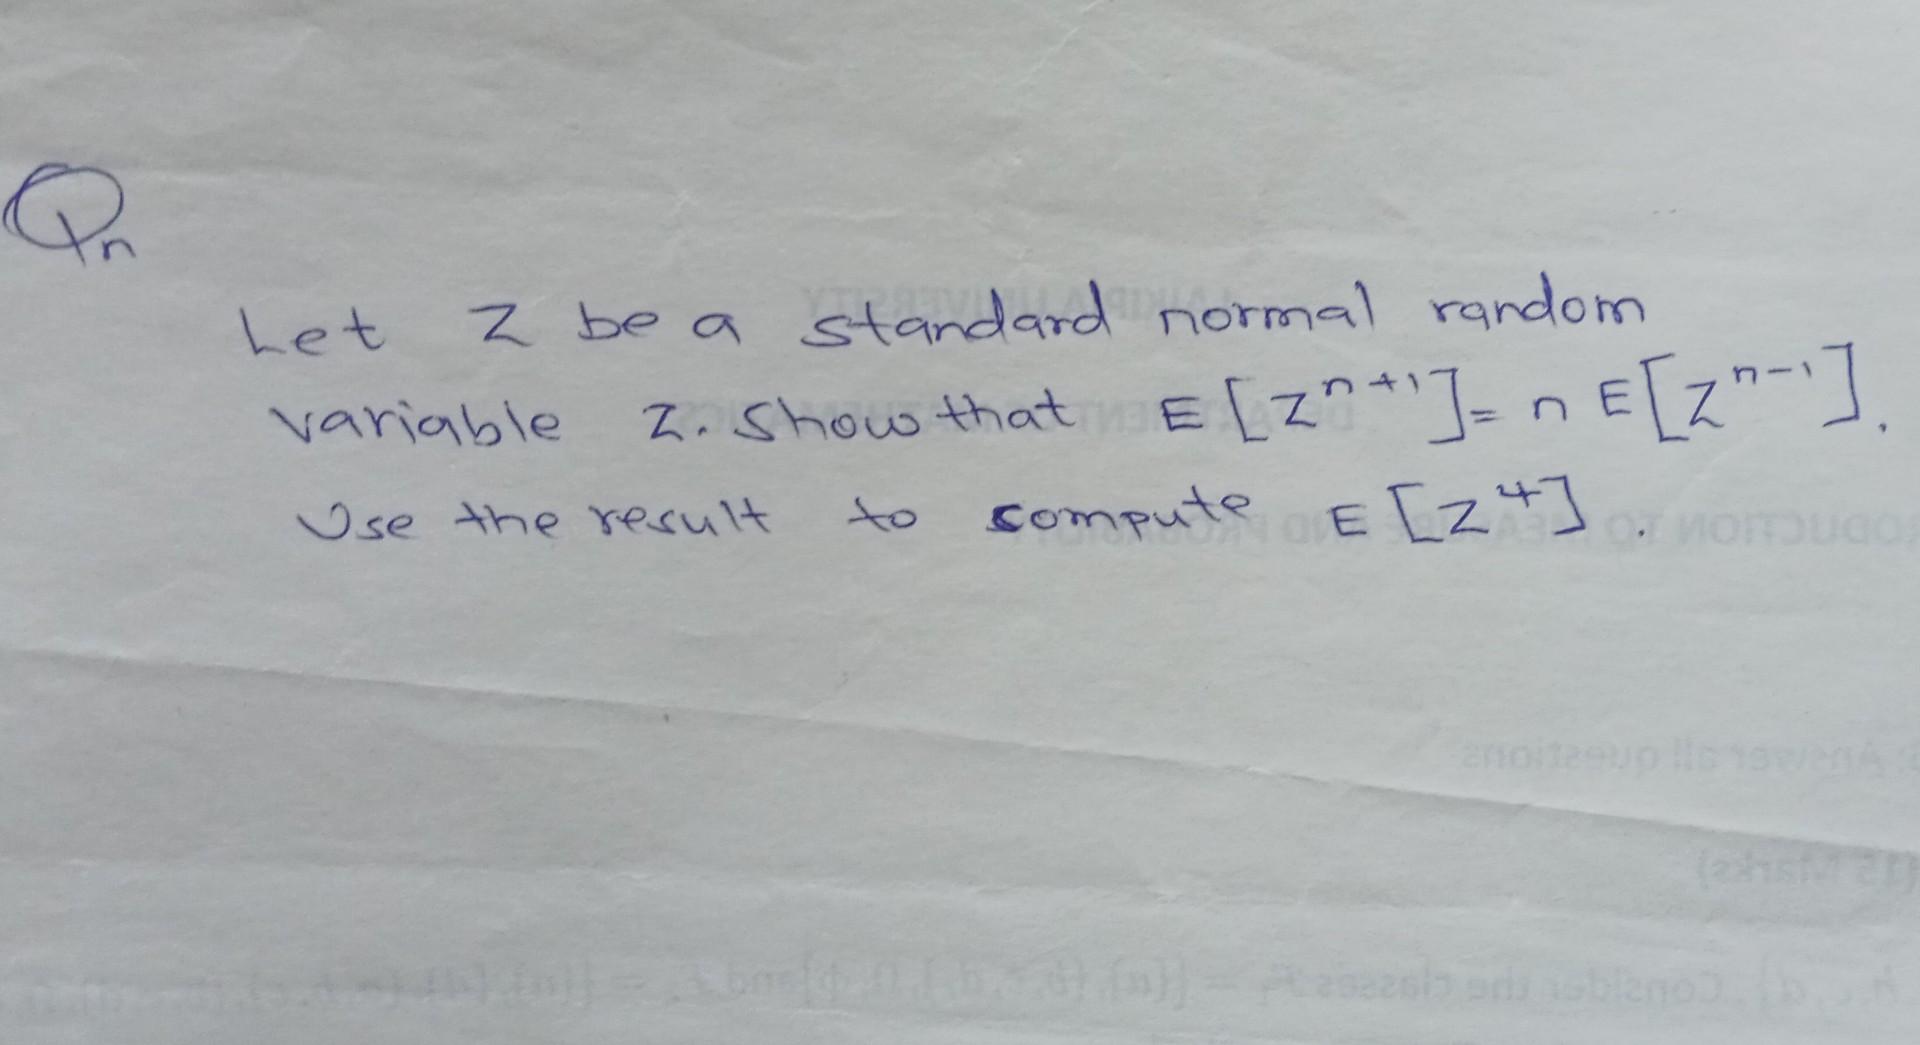 Qn
Let Z be a standard normal random
variable Z. Show that E[Z^{n+1}] = n E[Z^{n-1}].
Use the result to compute E[Z^4].